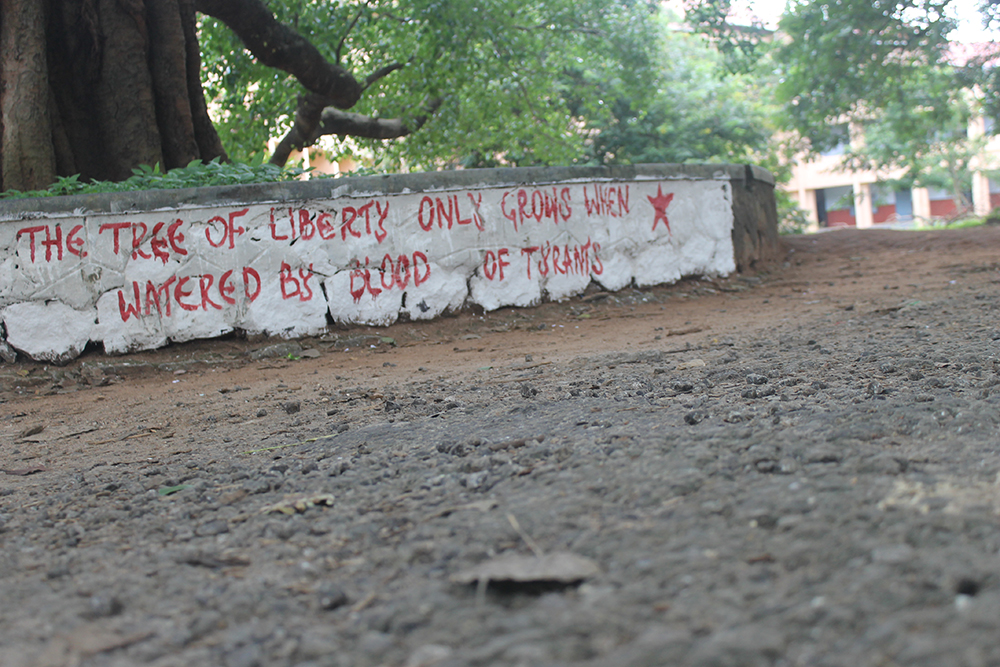 THE TREE OF LIBERTY ONLY GROWS WHEN
WATERED BY BLOOD OF TYRANTS